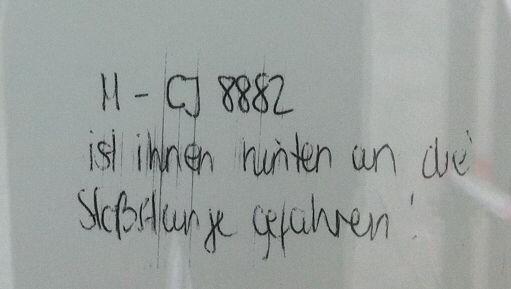 M - CJ 8882
ist ihnen hinten an die
Stoßstange gefahren!